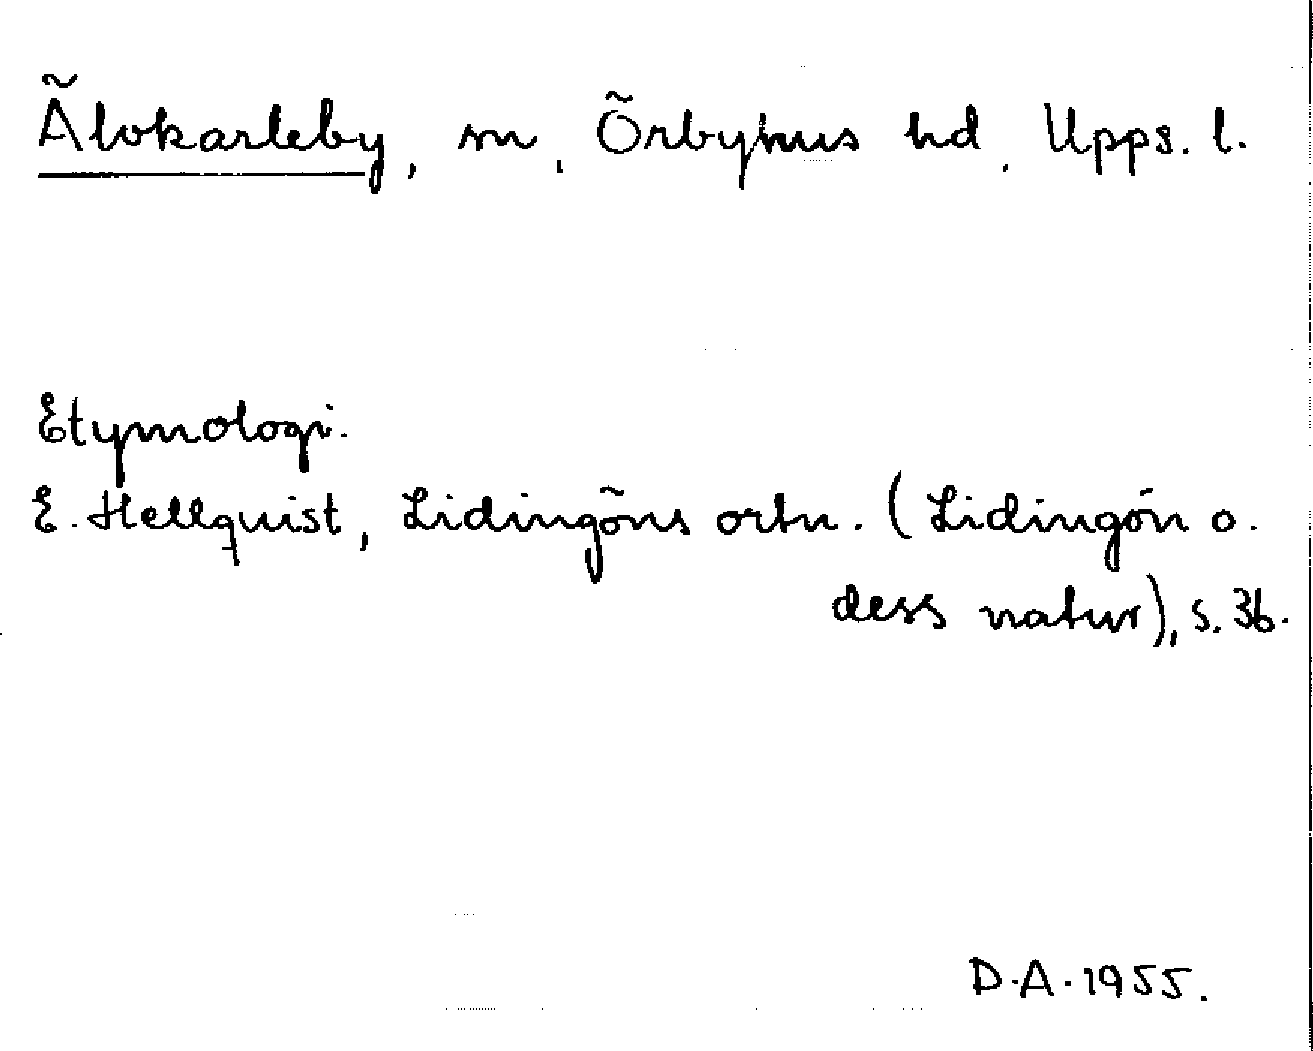 Älvkarleby, sn, Örbyhus hd, Upps. l.
Etymologi.
E. Hellquist, Lidingöns ortn. (Lidingön o.
dess natur), s. 36.
D.A. 1955.